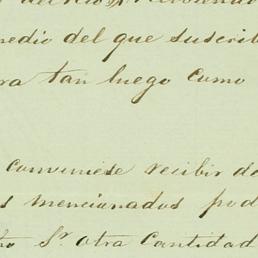 medio del que suscrib
ra tan luego como
conviniese recibir do
s mencionados pod
ho Sr. otra cantidad